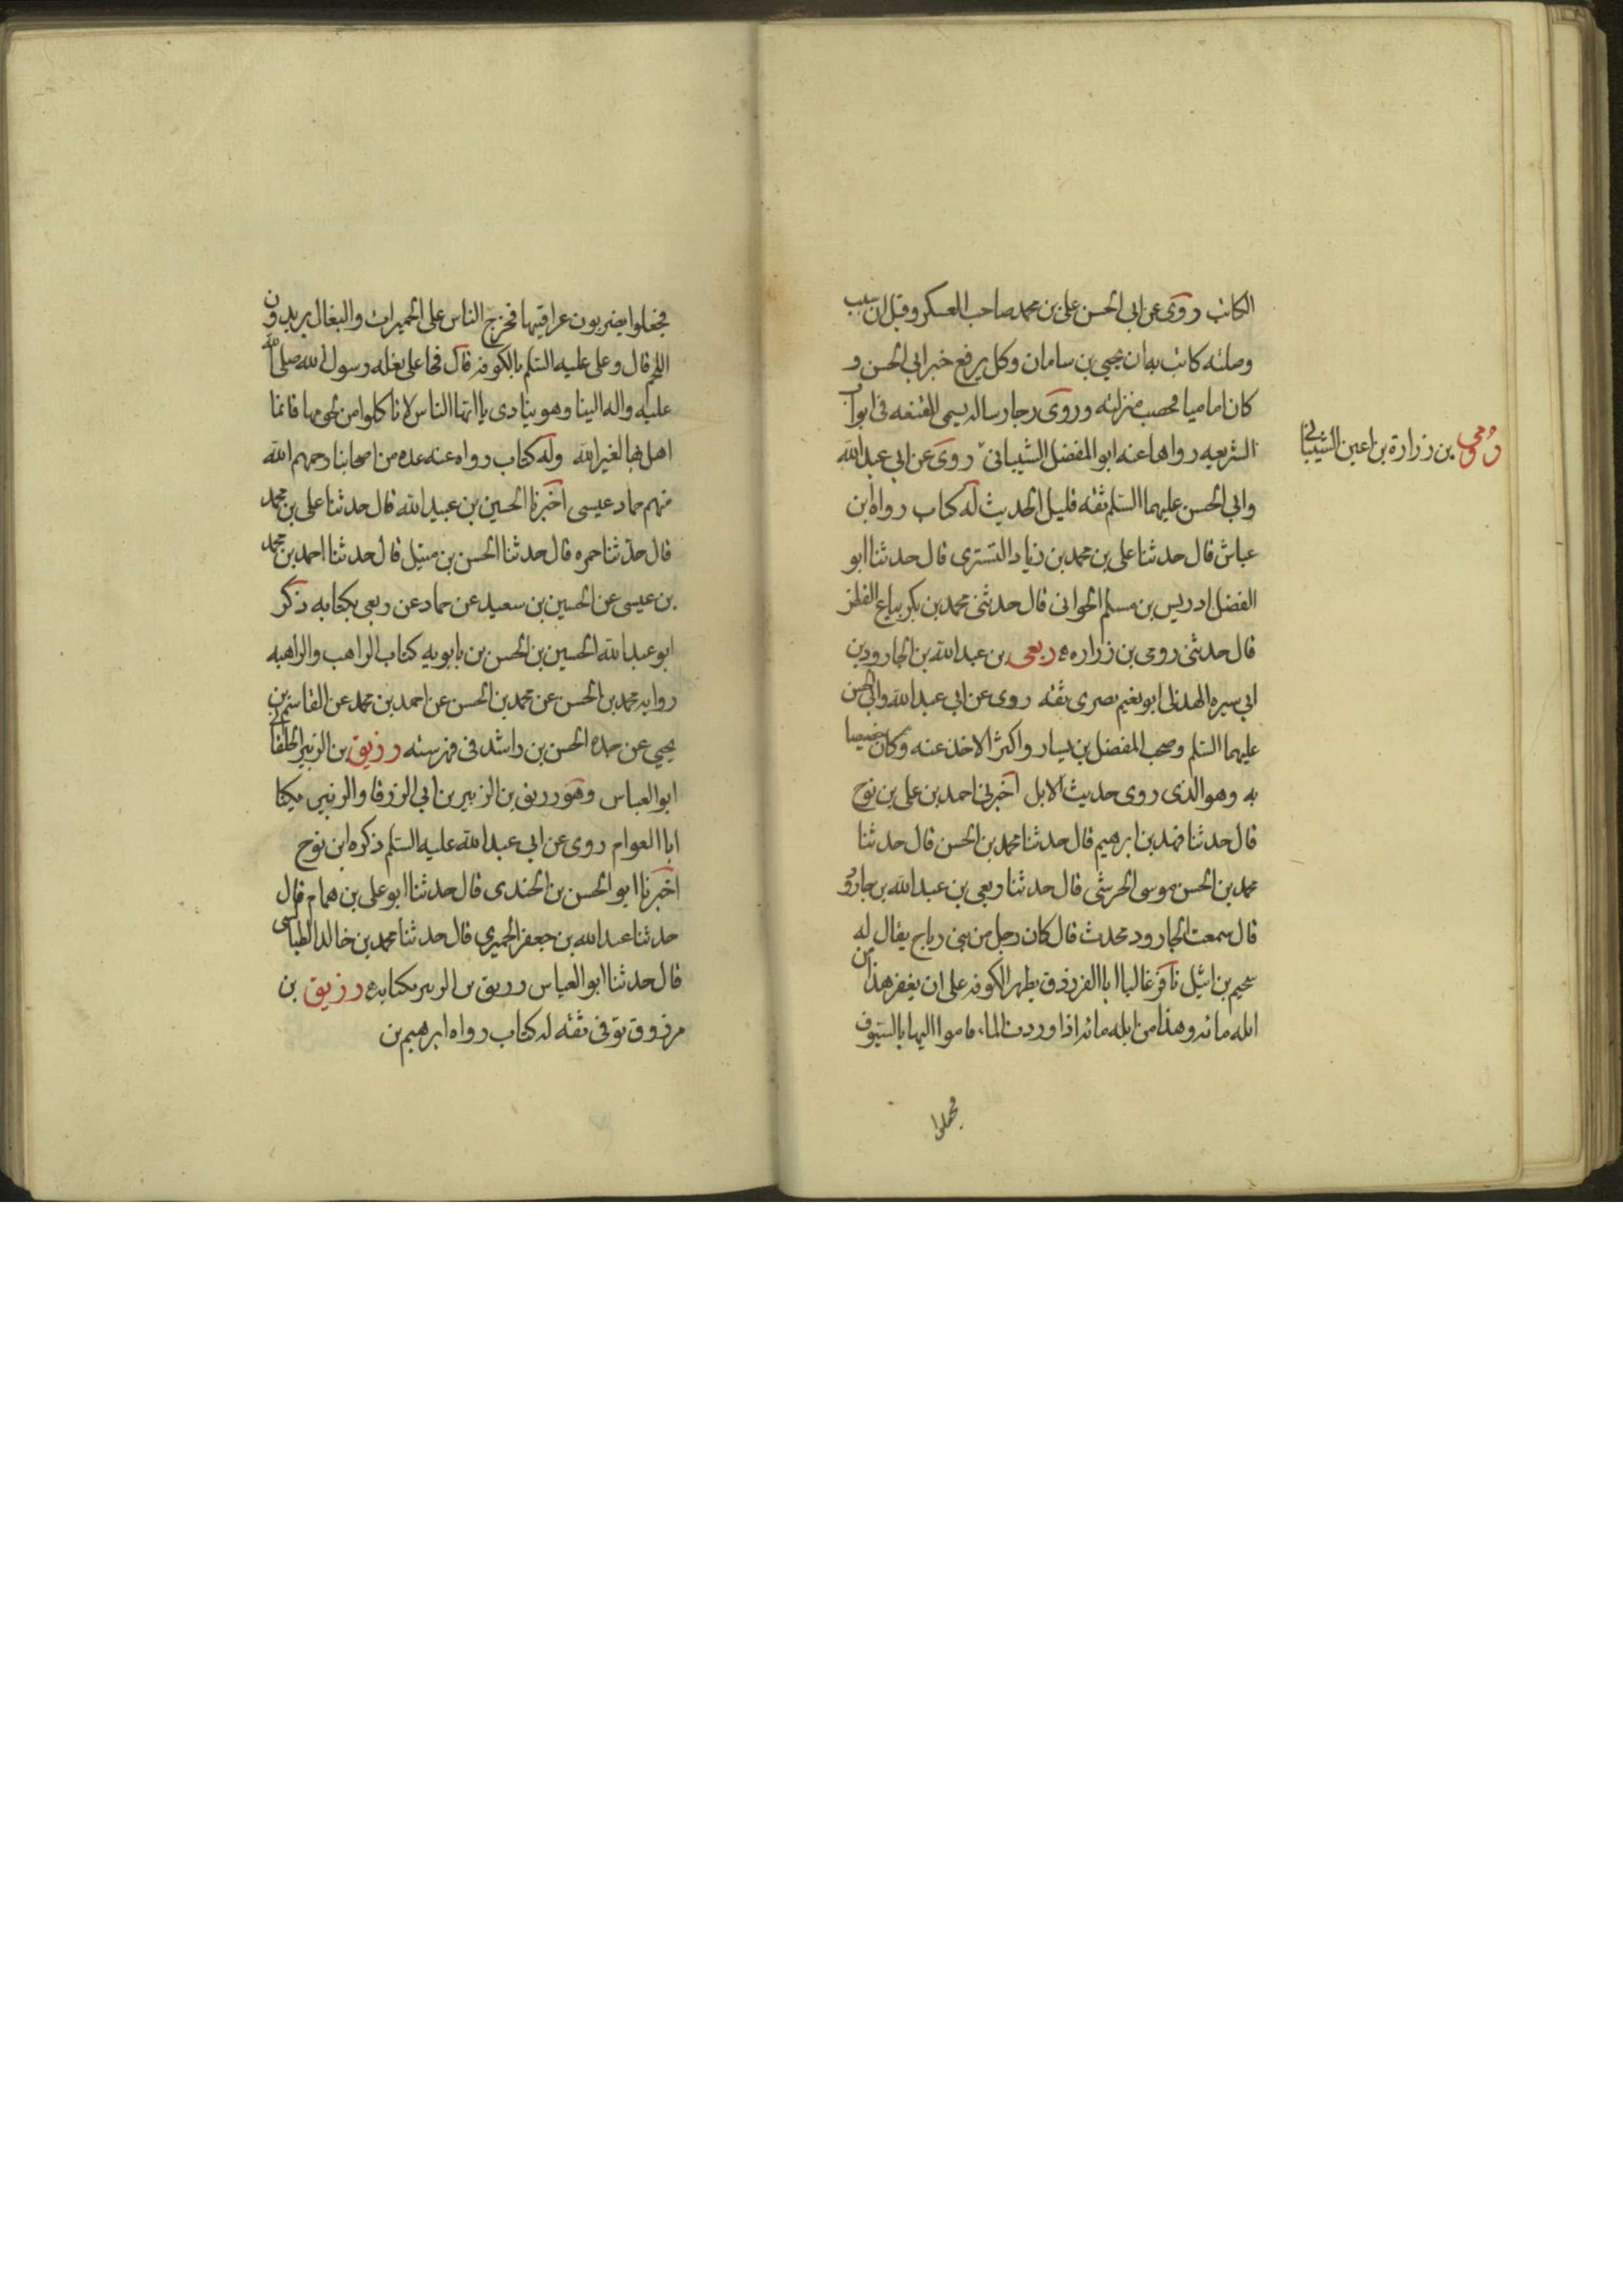 الكاتب روى عن ابي الحسن علي بن محمد صاحب العسكر وقيل ان سبب
وصلته كانت به ان يحيى بن سامان وكل يرفع خبر ابي الحسن و
كان اماميا فحصب منزلته وروى رجا رساله يسمى المقنعه في ابواب
الشريعه رواها عنه ابو المفضل الشيباني روى عن ابي عبد الله
رومي بن زرارة بن اعين الشيباني
وابي الحسن عليهما السلم ثقه قليل الحديث له كتاب رواه ابن
عياش قال حدثنا علي بن محمد بن زياد التسترى قال حدثنا ابو
الفضل ادريس بن مسلم الجواني قال حدثني محمد بن بكر بياع القطن
قال حدثني رومى بن زراره ربعى بن عبد الله بن الجارود بن
ابي سبره الهذلي ابو نعيم بصرى ثقه روى عن ابي عبد الله وابي الحسن
عليهما السلم وصحب المفضل بن يسار واكثر الاخذ عنه وكان خصيصا
به وهو الذى روى حديث الابل اخبرني احمد بن علي بن نوح
قال حدثنا فهد بن ابرهيم قال حدثنا محمد بن الحسن قال حدثنا
محمد بن الحسن موسى الحرشى قال حدثنا ربعي بن عبد الله بن جارود
قال سمعت الجارود محدث قال كان رجل من بنى رياح يقال له
سحيم بن اثيل نافر غالبا ابا الفرزدق بظهر الكوفه على ان يعقر هذا من
ابله مائه وهذا من ابله مائه اذا وردت الماء قاموا اليها بالسيوف
فجعلوا
فجعلوا يضربون عراقيبها فخرج الناس على الحميرات والبغال يريدون
اللحم قال وعلى عليه السلم بالكوفه قال فجا على بغله رسول الله صلى الله
عليه واله الينا وهو ينادى يا ايها الناس لا تاكلوا من لحومها فانما
اهل بها لغير الله وله كتاب رواه عنه عده من اصحابنا رحمهم الله
منهم حماد عيسى اخبرنا الحسين بن عبيد الله قال حدثنا على بن محمد
قال حدثنا حمزه قال حدثنا الحسن بن متيل قال حدثنا احمد بن محمد
بن عيسى عن الحسين بن سعيد عن حماد عن ربعي بكتابه ذكر
ابو عبد الله الحسين بن الحسن بن بابويه كتاب الراهب والراهبه
روايه محمد بن الحسن عن محمد بن الحسن عن احمد بن محمد عن القاسم بن
يحيى عن جده الحسن بن راشد في فهرسته رزيق بن الزبير الخلقاني
ابو العباس وهو رزيق بن الزبير بن ابي الزرقا والزبير يكنا
ابا العوام روى عن ابي عبد الله عليه السلم ذكره ابن نوح
اخبرنا ابو الحسن بن الجندى قال حدثنا ابو على بن همام قال
حدثنا عبد الله بن جعفر الحميري قال حدثنا محمد بن خالد الطيالسى
قال حدثنا ابو العباس رزيق بن الزبير بكتابه رزيق بن
مرزوق توفى ثقه له كتاب رواه ابرهيم بن